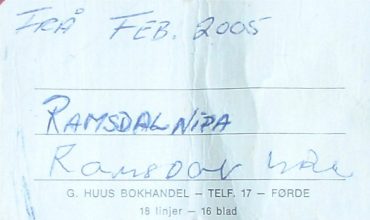 IFRÅ FEB. 2005
RAMSDALNIPA
Ramsdal
G. HUUS BOKHANDEL – TELF. 17 – FØRDE
16 linjer – 16 blad